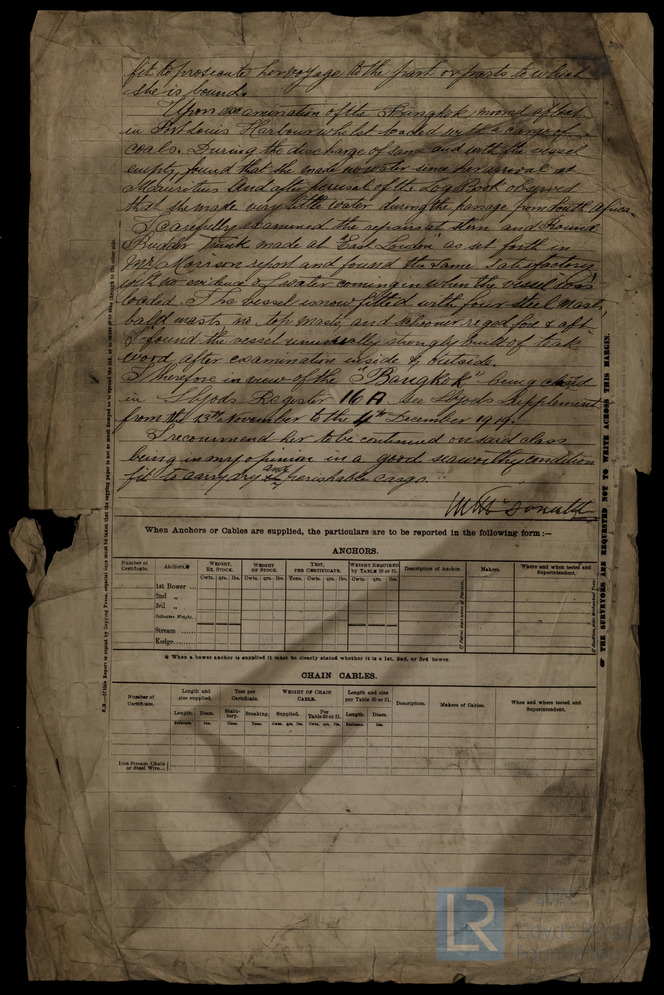 fit to prosecute her voyage to the port or ports to which
she is bound.
Upon examination of the Bangkok moored afloat
in Port Louis Harbour whilst loaded with a cargo of
coals. During the discharge of same and with the vessel
empty, found that she made no water since her arrival at
Mauritius and after perusal of the Log Book observed
that she made very little water during the passage from South Africa.
I carefully examined the repairs at stern and Round
Rudder Trunk made at East London as set forth in
Mr. Morrison report and found the same satisfactory
with no evidence of water coming in when the vessel was
loaded. The vessel is now fitted with four steel masts,
bald masts no top masts, and schooner rigged fore & aft.
I found the vessel unusually strongly built of teak
wood after examination inside & outside.
I therefore in view of the "Bangkok" being classed
in Lloyds Register 16 A see Lloyds Supplement
from the 13th November to the 4th December 1919.
I recommend her to be continued on said class
being in my opinion in a good seaworthy condition
fit to carry dry and perishable cargo.
When Anchors or Cables are supplied, the particulars are to be reported in the following form:—
ANCHORS.
Number of Certificate. Anchors.* WEIGHT, EX. STOCK. WEIGHT OF STOCK. TEST, PER CERTIFICATE. WEIGHT REQUIRED by TABLE 30 or 31. Description of Anchor. Makers. Where and when tested and Superintendent.
Cwts. qrs. lbs. Cwts. qrs. lbs. Tons. Cwts. qrs. lbs. Cwts. qrs. lbs.
1st Bower ...
2nd „
3rd „
Collective Weight.
Stream ......
Kedge......
* When a bower anchor is supplied it must be clearly stated whether it is a 1st, 2nd, or 3rd bower.
CHAIN CABLES.
Number of Certificate. Length and size supplied. Test per Certificate. WEIGHT OF CHAIN CABLE. Length and size per Table 30 or 31. Description. Makers of Cables. When and where tested and Superintendent.
Length. Diam. Statutory. Breaking. Supplied. Per Table 30 or 31. Length. Diam.
Fathoms. Ins. Tons. Tons. Cwts. qrs. lbs. Cwts. qrs. lbs. Fathoms. Ins.
Iron Stream Chain or Steel Wire...
THE SURVEYORS ARE REQUESTED NOT TO WRITE ACROSS THIS MARGIN.
LR